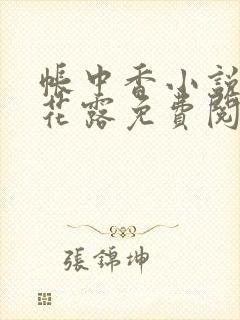 帳中香小說
花露免費閱
張錦坤